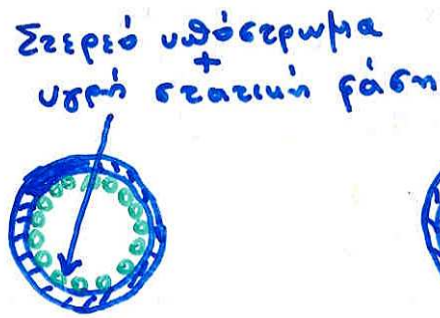 Στερεό υπόστρωμα
+
υγρή στατική φάση